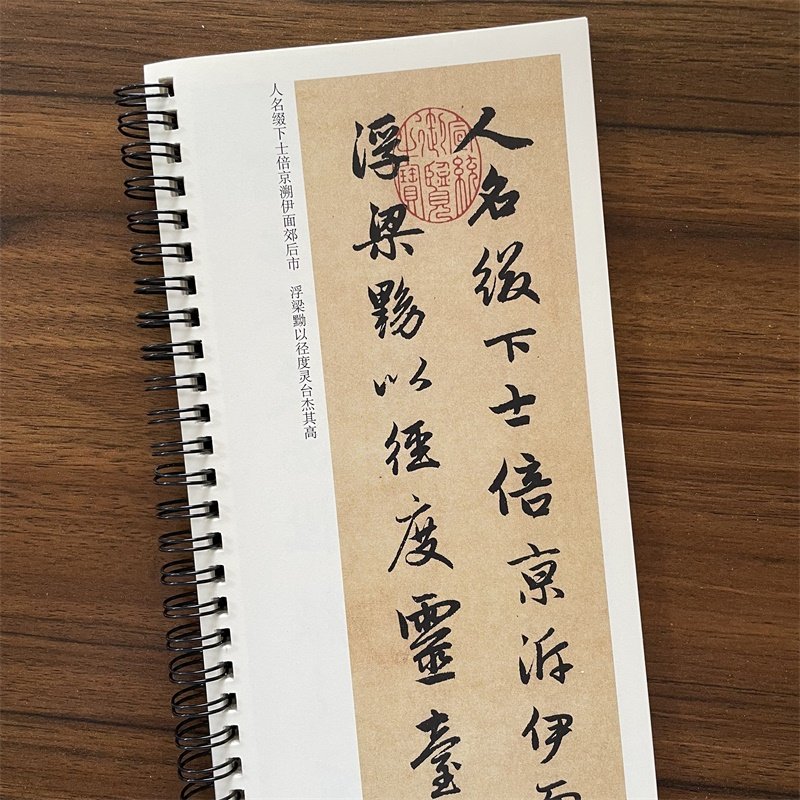 人名綴下士倍京泝伊
浮梁黝以徑度靈臺
宣統
御覽
之寶
人名缀下士倍京溯伊面郊后市 浮梁黝以径度灵台杰其高